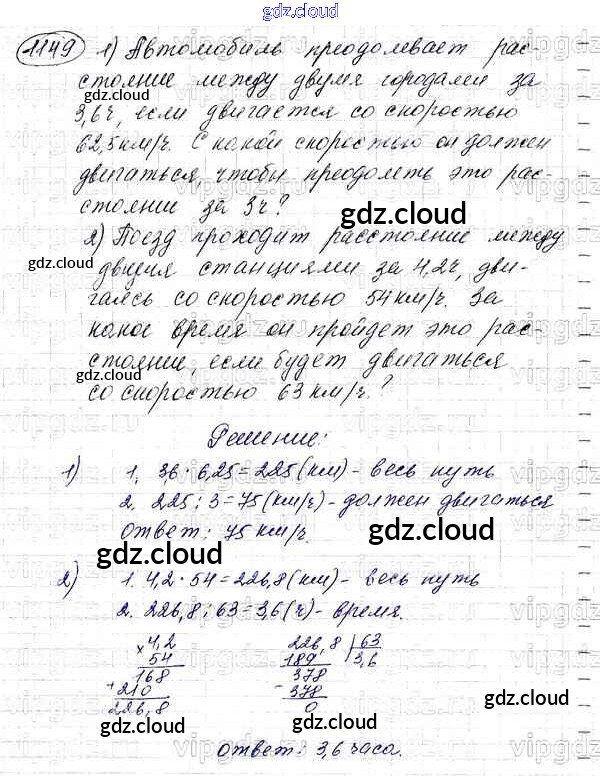 gdz.cloud
1149 1) Автомобиль преодолевает рас-
стояние между двумя городами за
gdz.cloud
gdz.cloud
3,6ч, если двигается со скоростью
62,5км/ч. С какой скоростью он должен
gdz.cloud
gdz.cloud
двигаться, чтобы преодолеть это рас-
стояние за 3ч?
gdz.cloud
2) Поезд проходит расстояние между
gdz.cloud
двумя станциями за 4,2ч, дви-
гаясь со скоростью 54км/ч. За
какое время он пройдет это рас-
стояние, если будет двигаться
gdz.cloud
gdz.cloud
со скоростью 63 км/ч.?
Решение:
gdz.cloud
1) 1. 36 · 6,25 = 225(км) - весь путь
2. 225 : 3 = 75(км/ч) - должен двигаться
Ответ: 75 км/ч.
gdz.cloud
gdz.cloud
2) 1. 4,2 · 54 = 226,8(км) - весь путь
2. 226,8 : 63 = 3,6(ч) - время.
× 4,2 226,8 63
54 189 3,6
168 378
+ 210 - 378
226,8 0
gdz.cloud
gdz.cloud
gdz.cloud
Ответ: 3,6 часа.